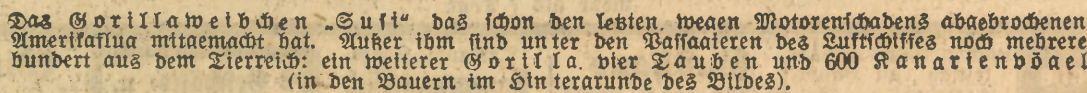 Das Gorillaweibchen „Susi“ das schon den letzten, wegen Motorenschadens abgebrochenen
Amerikaflug mitgemacht hat. Außer ihm sind unter den Passagieren des Luftschiffes noch mehrere
hundert aus dem Tierreich: ein weiterer Gorilla, vier Tauben und 600 Kanarienvögel
(in den Bauern im Hintergrunde des Bildes).